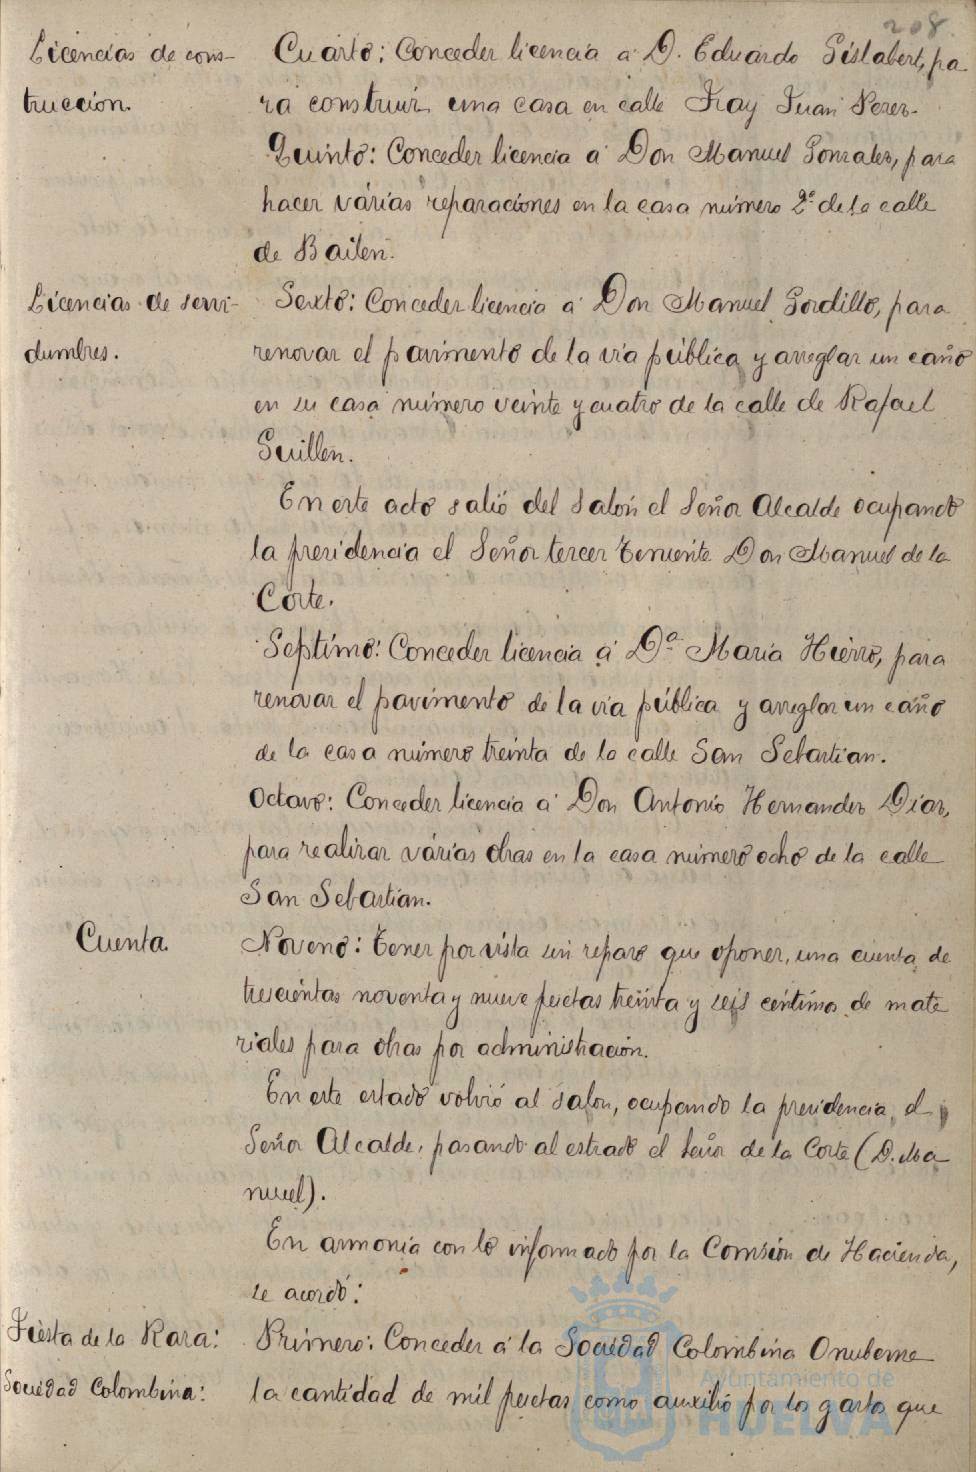 208
Licencias de cons-
trucción.
Cuarto: Conceder licencia á D. Eduardo Gislabert, pa
ra construir una casa en calle Fray Juan Perez.
Quinto: Conceder licencia á Don Manuel Gonzalez, para
hacer várias reparaciones en la casa número 2º de la calle
de Bailen.
Licencias de servi-
dumbres.
Sexto: Conceder licencia á Don Manuel Gordillo, para
renovar el pavimento de la via pública y arreglar un caño
en su casa número veinte y cuatro de la calle de Rafael
Guillen.
En este acto salió del salón el Señor Alcalde ocupando
la presidencia el Señor tercer Teniente Don Manuel de la
Corte.
Septimo: Conceder licencia á Dª Maria Hierro, para
renovar el pavimento de la via pública y arreglar un caño
de la casa número treinta de la calle San Sebastian.
Octavo: Conceder licencia á Don Antonio Hernandez Diaz,
para realizar várias obras en la casa número ocho de la calle
San Sebastian.
Cuenta.
Noveno: Tener por vista sin reparo que oponer, una cuenta de
trescientas noventa y nueve pesetas treinta y seis céntimos de mate
riales para obras por administración.
En este estado volvió al salon, ocupando la presidencia, el
Señor Alcalde, pasando al estrado el Señor de la Corte (D. Ma
nuel).
En armonia con lo informado por la Comisión de Hacienda,
se acordó:
Fiesta de la Raza:
Sociedad Colombina:
Primero: Conceder á la Sociedad Colombina Onubense
la cantidad de mil pesetas como auxilio por los gastos que
Ayuntamiento de
HUELVA